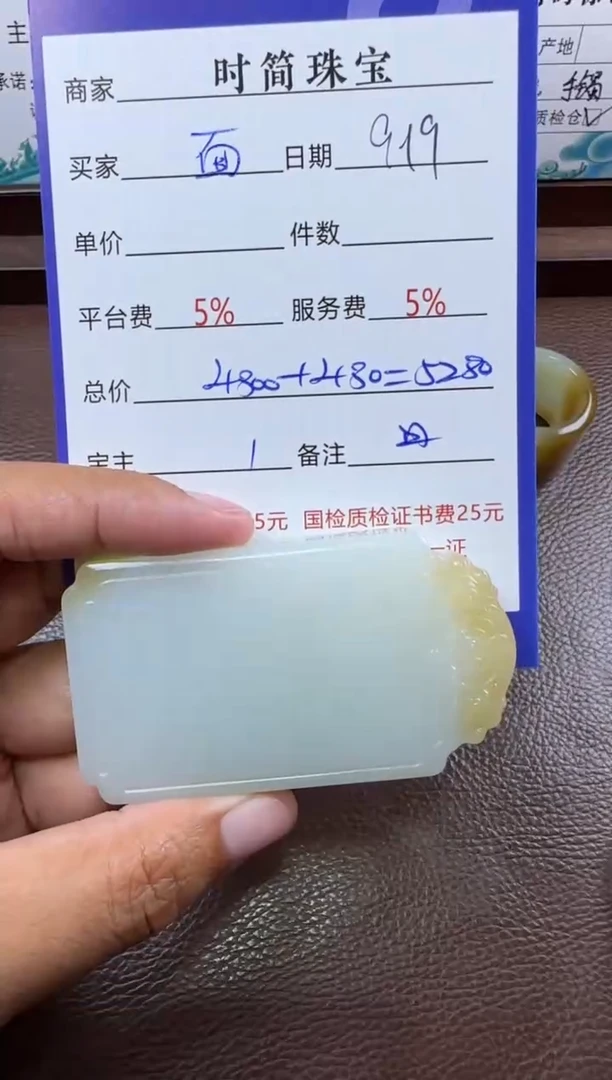 时简珠宝
商家
买家 面 日期 919
单价 件数
平台费 5% 服务费 5%
总价 4800+480=5280
宝主 1 备注
5元 国检质检证书费25元
一证
主
承诺:
产地
质检仓